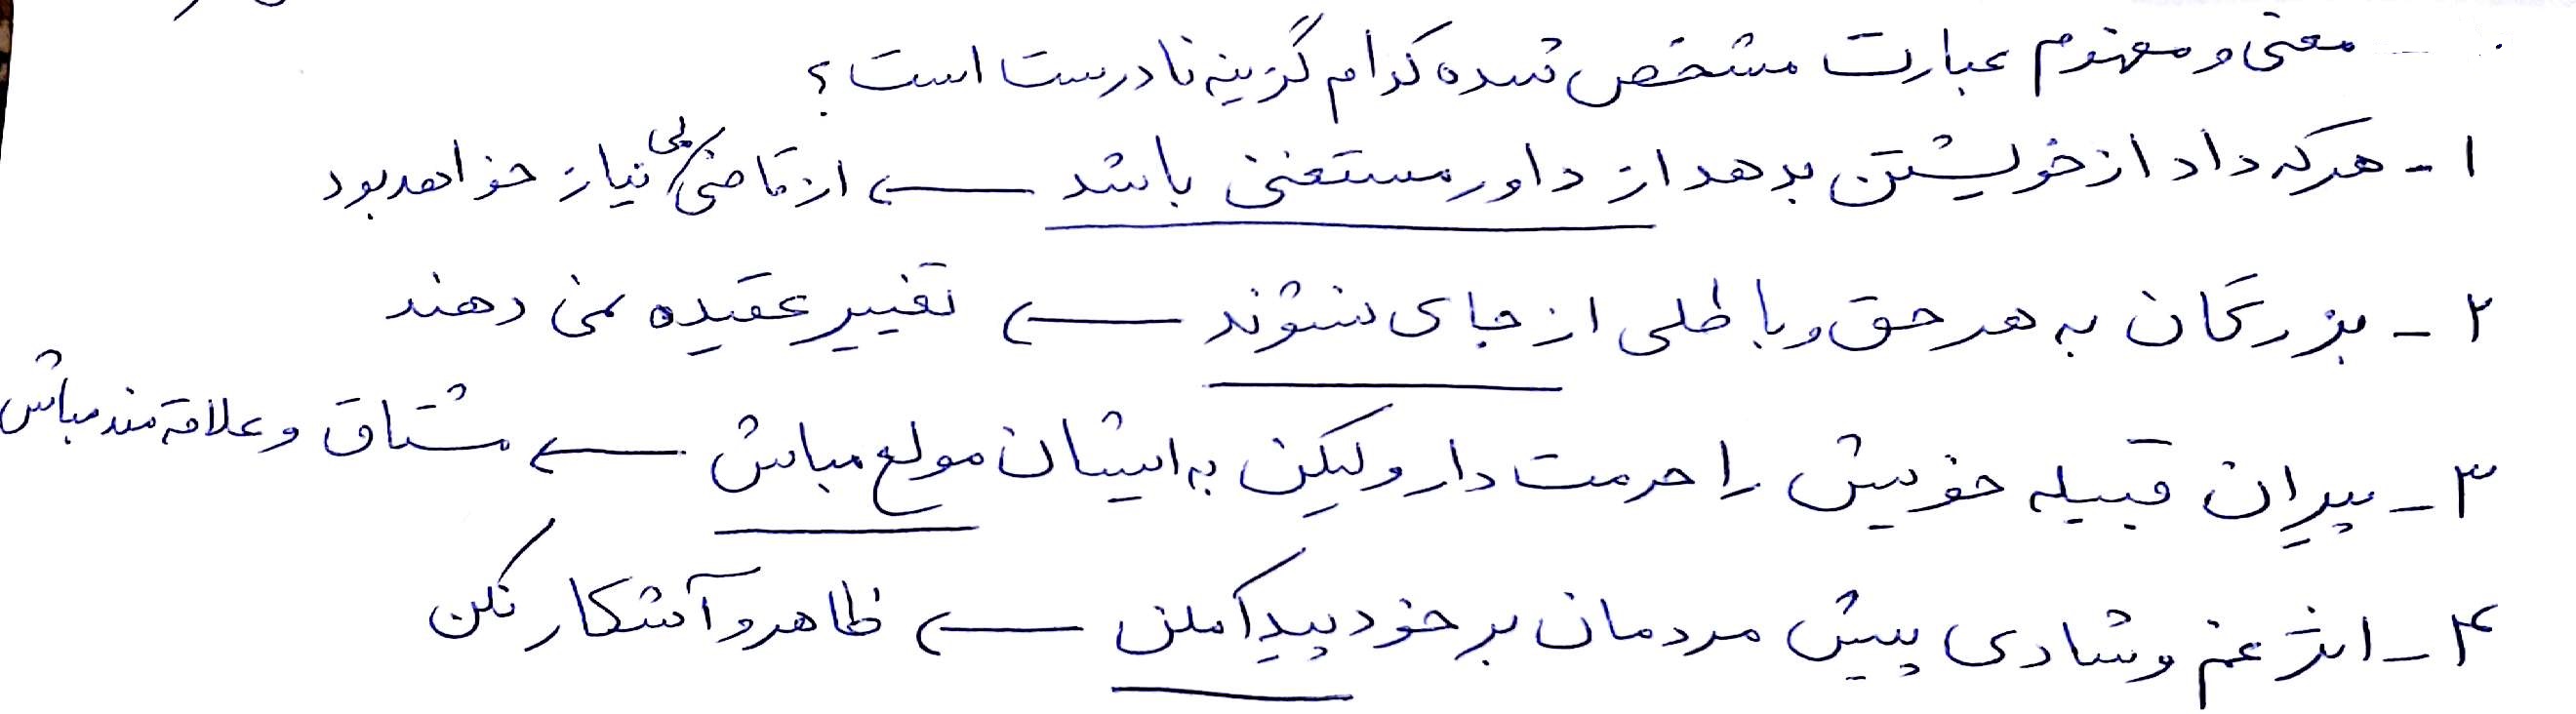 معنی و مفهوم عبارت مشخص شده کدام گزینه نادرست است؟
۱- هرکه داد از خویشتن بدهد از داور مستغنی باشد ← از قاضی بی نیاز خواهد بود
۲- بزرگان به هر حق و باطلی از جای نشوند ← تغییر عقیده نمی دهند
۳- پیران قبیله خویش را حرمت دار ولیکن به ایشان مولع مباش ← مشتاق و علاقه مند مباش
۴- اثر غم و شادی پیش مردمان بر خود پیدا مکن ← ظاهر و آشکار نکن